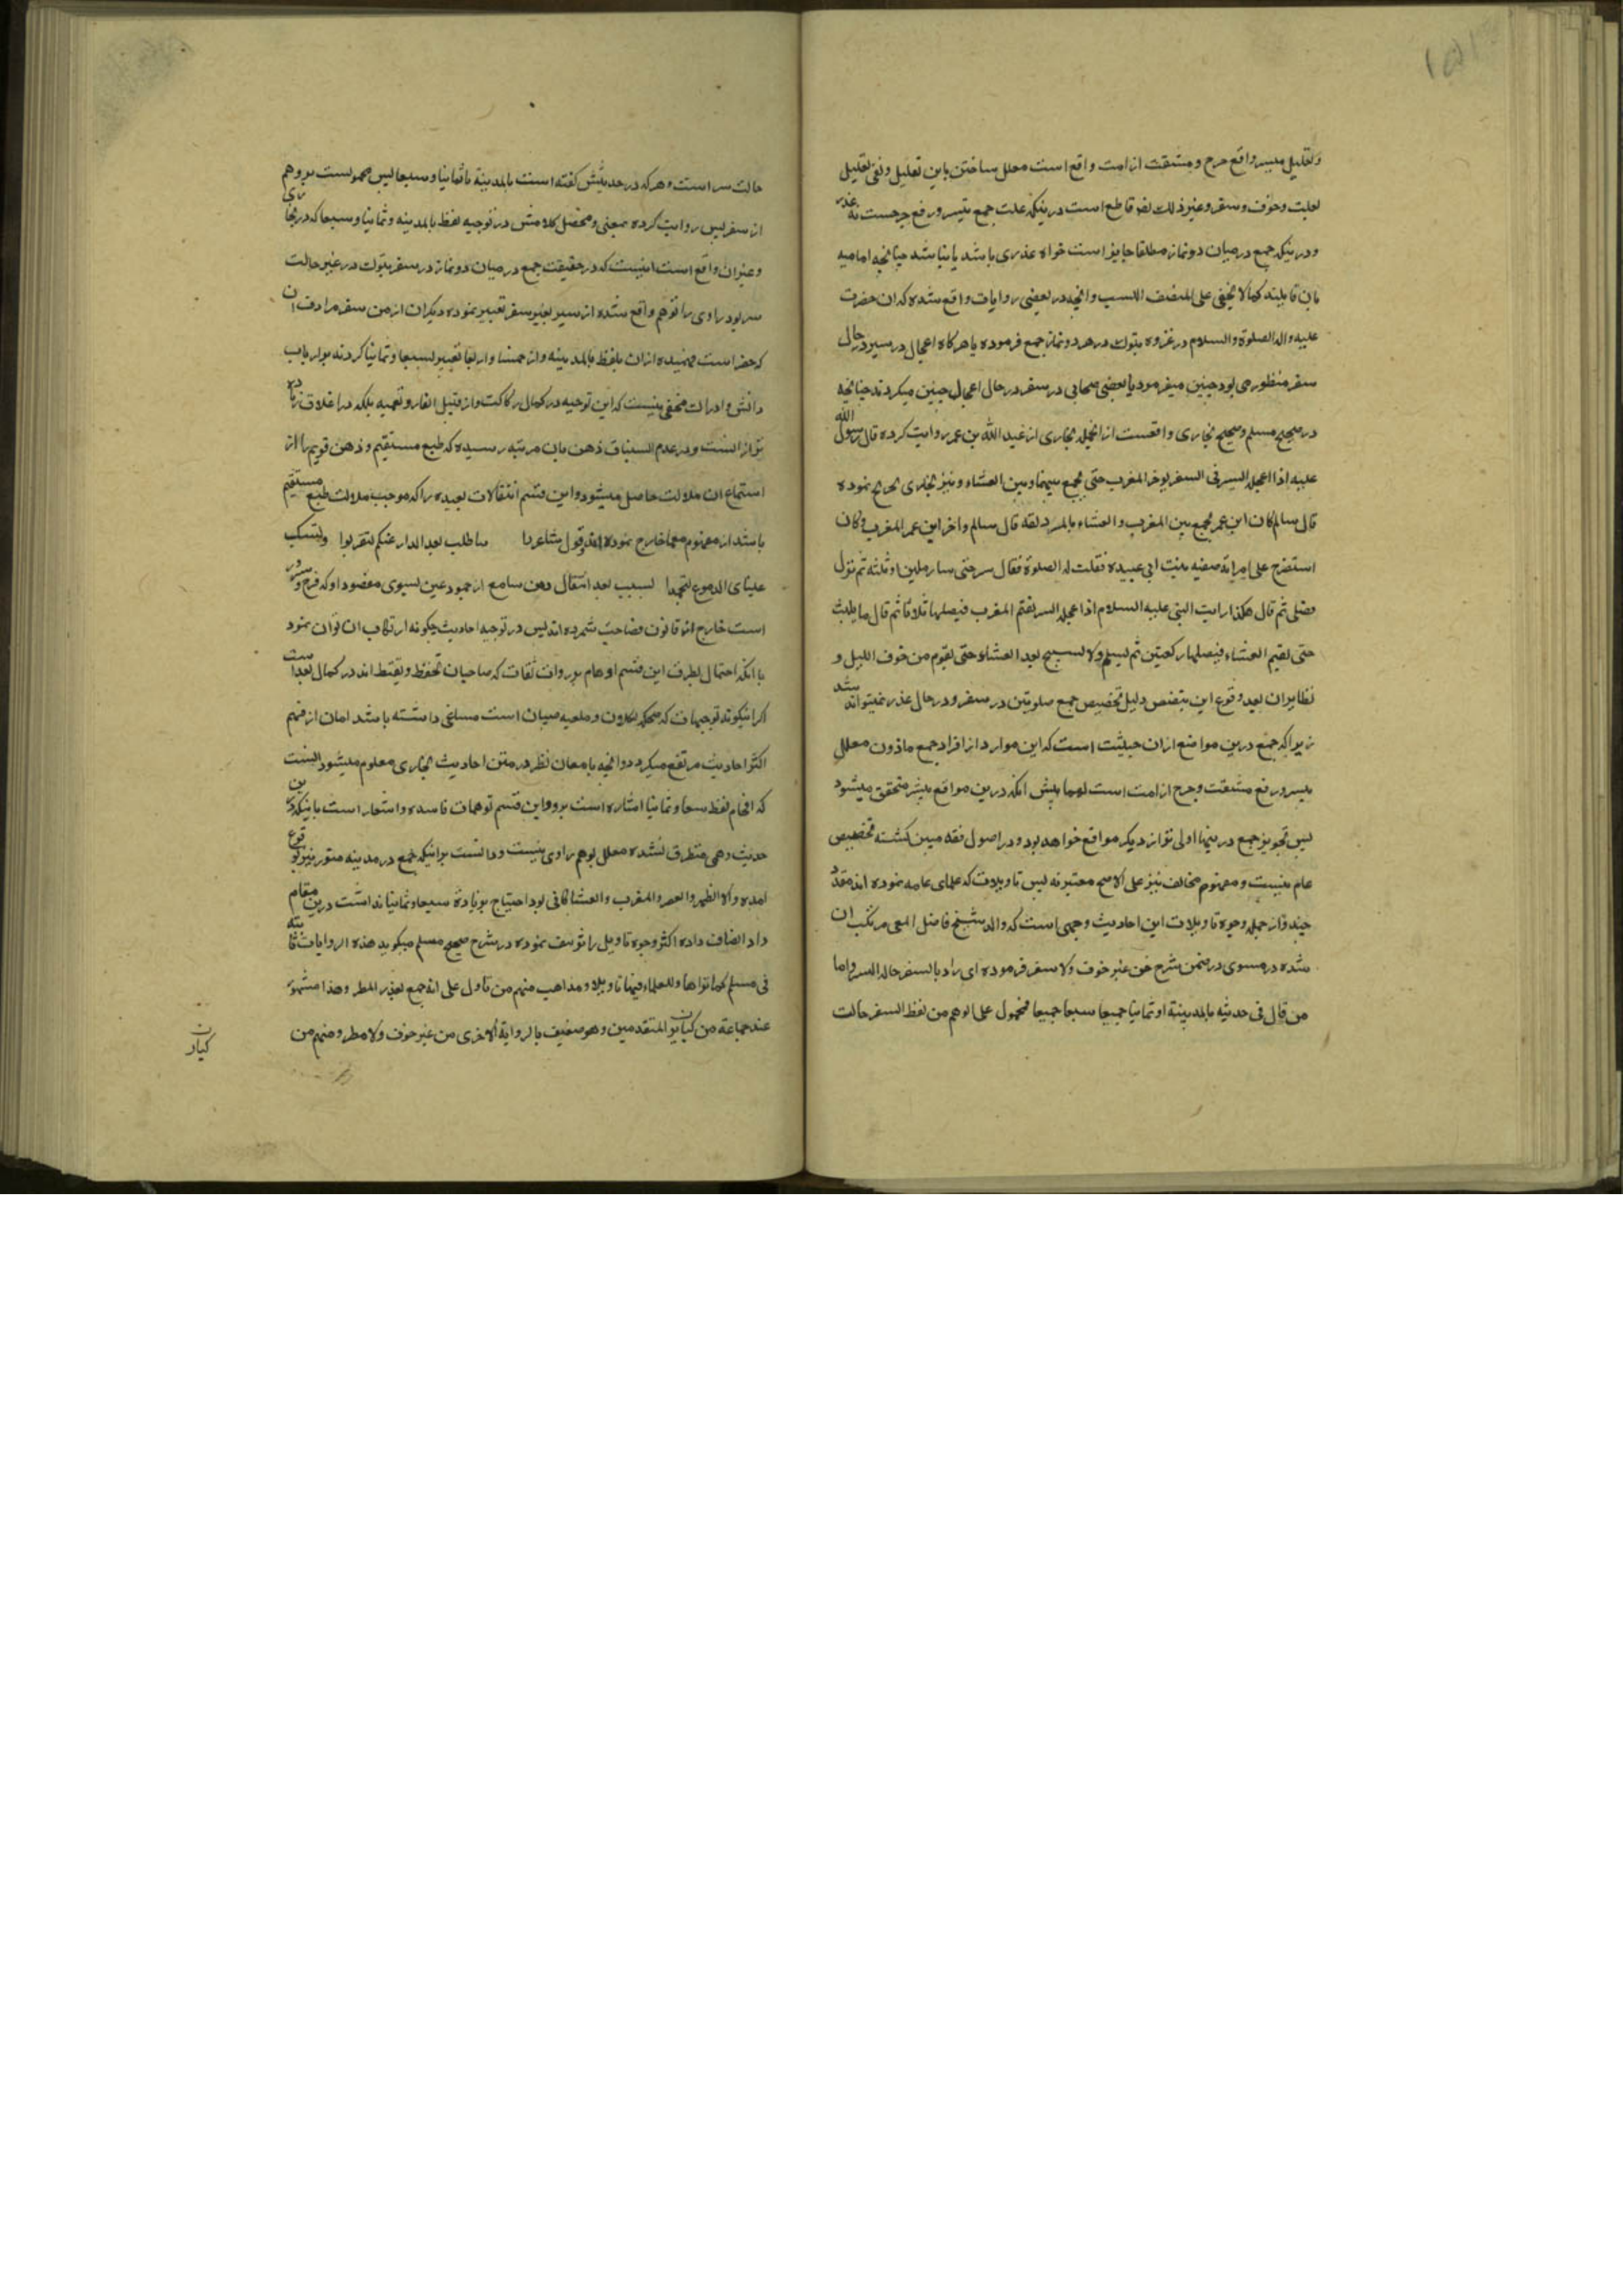 ۱۵۱
و تعلیل میسر واقع حرج و مشقت از امت واقع است معلل ساختن باین تعلیل و نفی تعلیل
و خوف و سفر و غیر ذلک نص قاطع است درینکه علت جمع تیسر و رفع حرجست نه عذر
و درینکه جمع درمیان دو نماز مطلقا جایز است خواه عذری باشد یا نباشد چنانچه امامیه
بان قایلند کما لا یخفی علی المنصف اللبیب و انچه در بعضی روایات واقع شده که ان حضرت
علیه و اله الصلوة و السلام در غزوه تبوک در هر دو نماز جمع فرموده یا هرگاه اعجال در سیر در حال
سفر منظور می بود چنین میفرمود یا بعضی صحابی در سفر در حال اعجال چنین میکردند چنانچه
در صحیح مسلم و صحیح بخاری واقعست ازانجمله بخاری از عبد الله بن عمر روایت کرده قال رسول الله
علیه اذا اعجله السیر فی السفر یوخر المغرب حتی یجمع بینها و بین العشاء و نیز بخاری نموده
قال سالم کان ابن عمر یجمع بین المغرب و العشاء بالمزدلفه قال سالم و اخر ابن عمر المغرب و کان
استصرخ علی امراته صفیه بنت ابی عبیده فقلت له الصلوة فقال سر حتی سار میلین او ثلثه ثم نزل
فصلی ثم قال هکذا رایت النبی علیه السلام اذا اعجله السیر یقیم المغرب فیصلیها ثلاثا ثم قال ما یلبث
حتی یقیم العشاء فیصلیها رکعتین ثم یسلم و لا یسبح بعد العشاء حتی یقوم من جوف اللیل و
نظایر ان بعد وقوع این دلیل تخصیص جمع صلوتین در سفر و در حال عذر نمیتواند شد
زیرا که جمع درین مواضع ازان حیثیت است که این موارد از افراد جمع ماذون معلل
میسر و رفع مشقت و حرج از امت است انکه درین مواقع بیشتر متحقق میشود
پس تجویز جمع درینها اولی تر از دیگر مواقع خواهد بود و در اصول فقه مبین گشته تخصیص
عام نیست و مفهوم مخالف نیز علی الاصح معتبر نه پس تاویلات که علمای عامه نموده اند
چند و از جمله وجوه تاویلات این احادیث وجهی است که والد شیخ فاضل المعی مرتکب ان
شده در مسوی در ضمن شرح من غیر خوف و لا سفر فرموده ای راد بالسفر حالة السیر و اما
من قال فی حدیثه بالمدینة او ثمانیا جمیعا سبعا جمیعا فمحمول علی الوهم من لفظ السفر حالت
حالت سیر است و هر که در حدیثش گفته است بالمدینة یا ثمانیا و سبعا پس محمولست بر وهم
از سفر پس روایت کرده بمعنی و محصل کلامش در توجیه لفظ بالمدینه و ثمانیا و سبعا که
و غیران واقع است اینست که در حقیقت جمع درمیان دو نماز در سفر تبوک در غیر حالت
سیر بود راوی را توهم واقع شده از سیر بغیر سفر تعبیر نموده دیگران از من سفر مرادف ان
که حضر است فهمیده ازان بلفظ بالمدینه و از خمسا و اربعا تعبیر بسبعا و ثمانیا کردند بر ارباب
دانش و ادراک مخفی نیست که این توجیه در کمال رکاکت و از قبیل الغاز و تعمیه بلکه در اغلاق زیاده
تر ازانست و در عدم انسباق ذهن بان مرتبه رسیده که طبع مستقیم و ذهن قویم را از
استماع ان ملالت حاصل میشود و این قسم انتقالات بعیده را که موجب ملالت طبع مستقیم
باشد از مفهوم معما خارج نموده اند و قول شاعر ساطلب بعد الدار عنکم لتقربوا و تسکب
عینای الدموع لتجمدا بسبب بعد انتقال ذهن سامع از جمود عین بسوی مقصود او که فرح و سرور
است خارج از قانون فصاحت شمرده اند پس در توجیه احادیث چگونه ارتکاب ان توان نمود
با انکه احتمال تطرق این قسم اوهام بر روات ثقات که صاحبان تحفظ و تیقظ اند در کمال بعد است
اگر اینگونه توجیهات که و ملعبه صبیان است مساغی داشته باشد امان از فهم
اکثر احادیث مرتفع میگردد و انچه بامعان نظر در متن احادیث بخاری معلوم میشود اینست
که اقحام لفظ سبعا و ثمانیا اشاره است برد این قسم توهمات فاسده و اشعار است باینکه درین
حدیث وهمی متطرق نشده معلل بوهم راوی نیست و دانست برانیکه جمع در مدینه منوره نیز بوقوع
امده و الا الظهر و العصر و المغرب و العشا کافی بود احتیاج بزیاده سبعا و ثمانیا نداشت درین مقام
داد انصاف داده اکثر وجوه تاویل را تزییف نموده در شرح صحیح مسلم میگوید هذه الروایات ثابته
فی مسلم کما تراها و للعلماء فیها تاویلا و مذاهب منهم من تاول علی انه جمع بعذر المطر و هذا مشهور
عند جماعة من کبار المتقدمین و هو ضعیف بالروایة الاخری من غیر خوف و لا مطر و منهم من
کبار